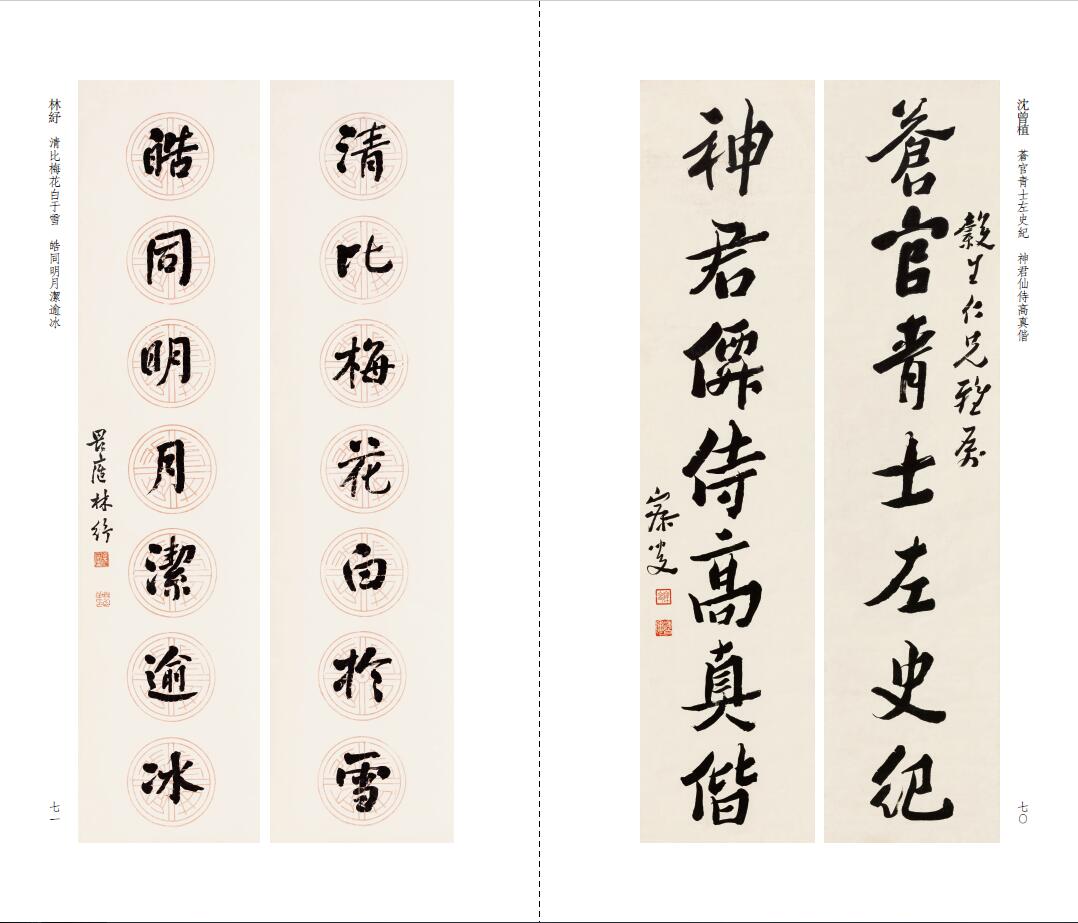 沈曾植　蒼官青士左史紀　神君仙侍高真偕
穀生仁兄雅屬
蒼官青士左史紀
神君僊侍高真偕
寐叟
七〇
清比梅花白於雪
皓同明月潔逾冰
畏廬林紓
林紓　清比梅花白于雪　皓同明月潔逾冰
七一